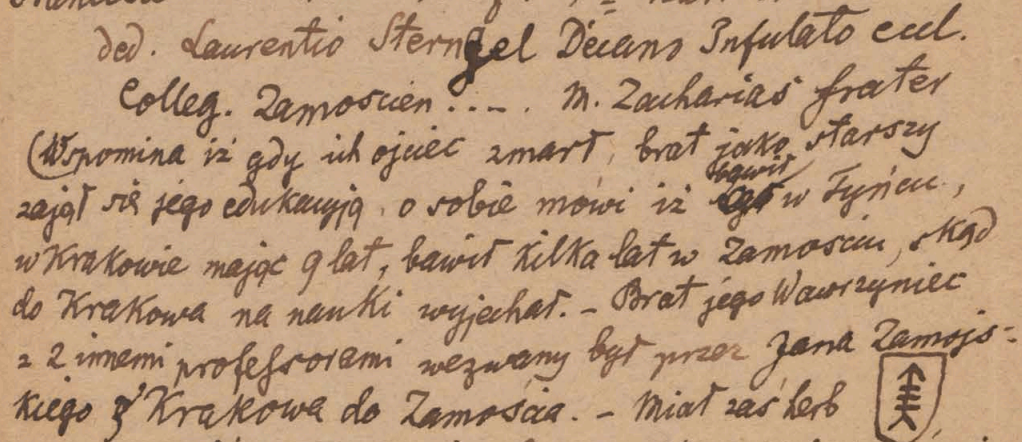 ded. Laurentio Sterngel Decano Infulato eccl.
Colleg. Zamoscien . . – . M. Zacharias frater
(Wspomina iż gdy ich ojciec zmarł, brat jako starszy
zajął się jego edukacyją, o sobie mówi iż bawił w Tyńcu,
w Krakowie mając 9 lat, bawił kilka lat w Zamościu, skąd
do Krakowa na nauki wyjechał. – Brat jego Wawrzyniec
z 2 innemi professorami wezwany był przez Jana Zamojs-
kiego z Krakowa do Zamościa. – Miał zaś herb